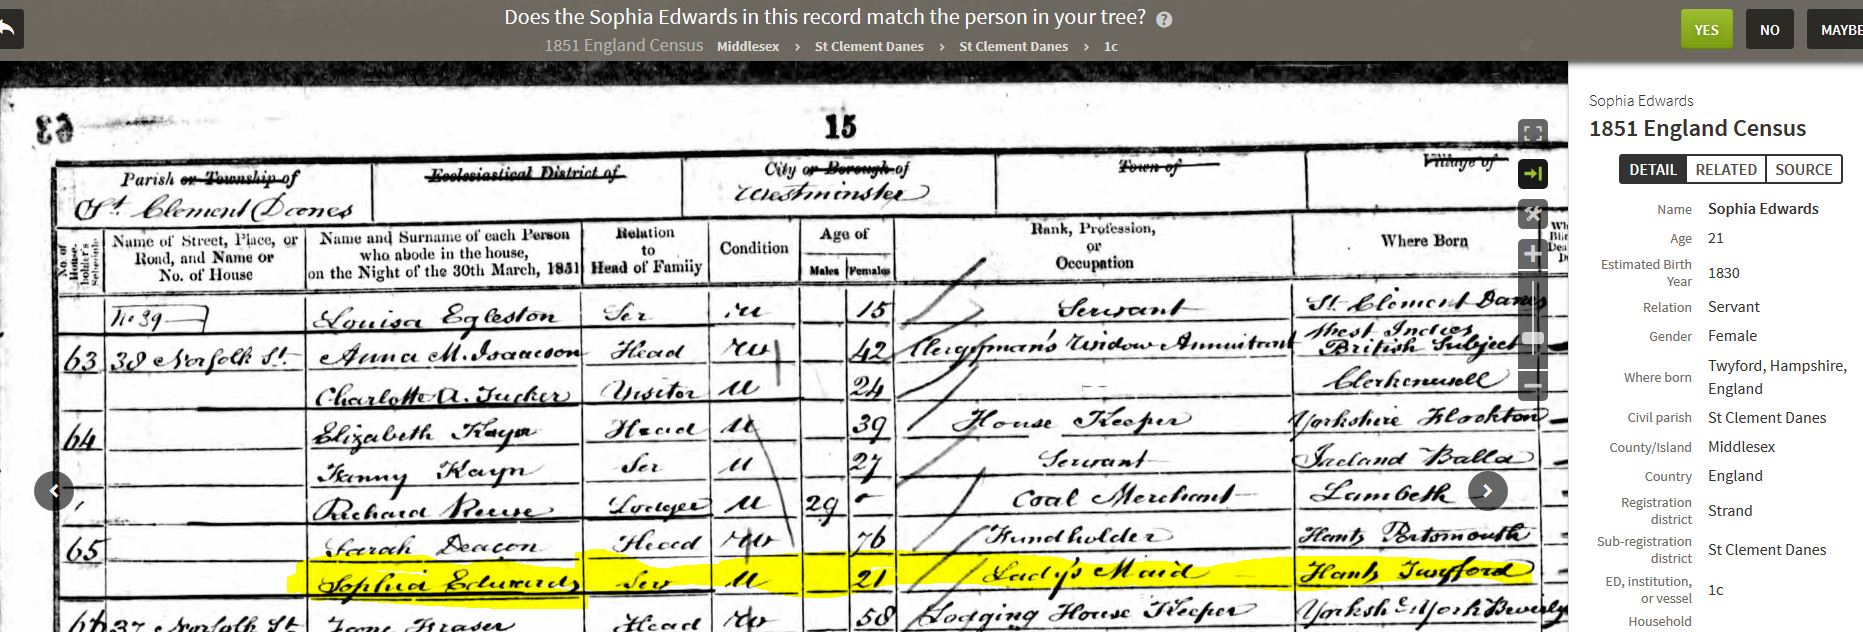 Does the Sophia Edwards in this record match the person in your tree? ?
1851 England Census Middlesex › St Clement Danes › St Clement Danes › 1c
YES NO MAYBE
63 15
Parish or Township of Ecclesiastical District of City or Borough of Town of Village of
St. Clement Danes Westminster
No. of House-holder's Schedule Name of Street, Place, or Road, and Name or No. of House Name and Surname of each Person who abode in the house, on the Night of the 30th March, 1851 Relation to Head of Family Condition Age of Males Females Rank, Profession, or Occupation Where Born
No 39 Louisa Egleston Ser U 15 Servant St. Clement Danes
63 38 Norfolk St. Anna M. Isaacson Head W 42 Clergyman's Widow Annuitant West Indies British Subject
Charlotte A. Tucker Visitor U 24 Clerkenwell
64 Elizabeth Head U 39 House Keeper Yorkshire Flockton
Fanny Ser U 27 Servant Ireland
Richard Lodger U 29 Coal Merchant Lambeth
65 Sarah Deacon Head W 76 Fundholder Hants Portsmouth
Sophia Edwards Ser U 21 Lady's Maid Hants Twyford
66 37 Norfolk St Jane Fraser Head 58 Lodging House Keeper
Sophia Edwards
1851 England Census
DETAIL RELATED SOURCE
Name Sophia Edwards
Age 21
Estimated Birth Year 1830
Relation Servant
Gender Female
Where born Twyford, Hampshire, England
Civil parish St Clement Danes
County/Island Middlesex
Country England
Registration district Strand
Sub-registration district St Clement Danes
ED, institution, or vessel 1c
Household